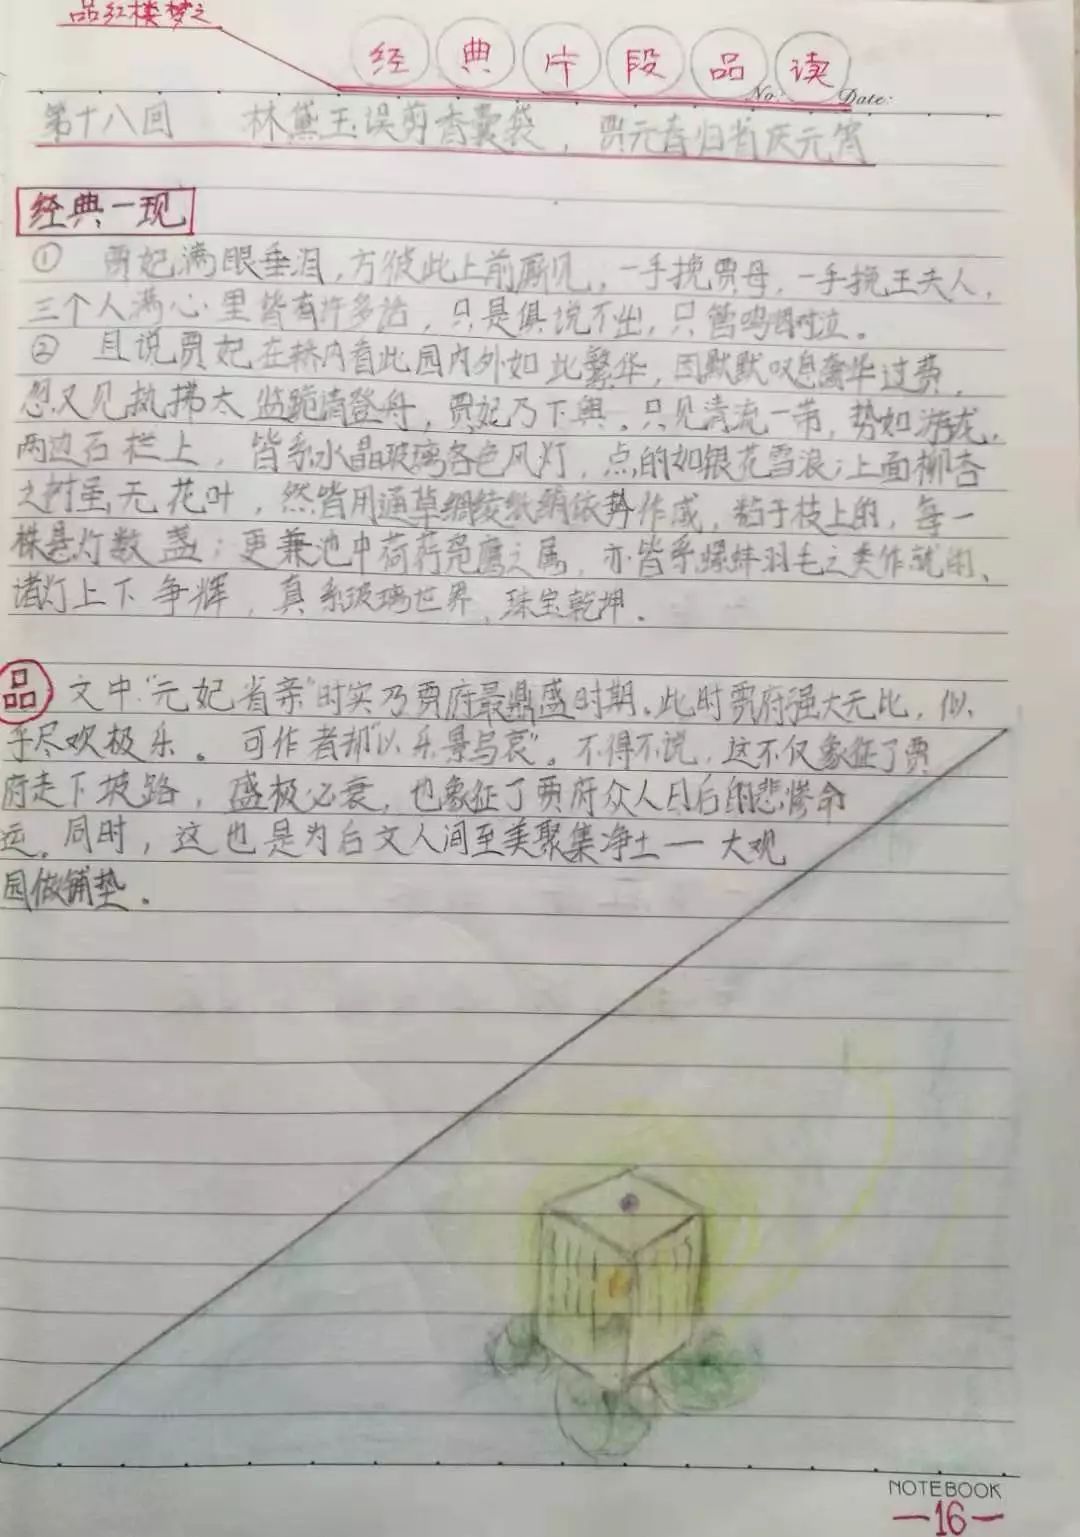 品红楼梦之
经典片段品读
No: Date:
第十八回 林黛玉误剪香囊袋，贾元春归省庆元宵
经典一现
① 贾妃满眼垂泪，方彼此上前厮见，一手挽贾母，一手挽王夫人，
三个人满心里皆有许多话，只是俱说不出，只管呜咽对泣。
② 且说贾妃在轿内看此园内外如此繁华，因默默叹息奢华过费，
忽又见执拂太监跪请登舟，贾妃乃下舆。只见清流一带，势如游龙，
两边石栏上，皆系水晶玻璃各色风灯，点的如银花雪浪；上面柳杏
之树虽无花叶，然皆用通草绸绫纸绢依势作成，粘于枝上的，每一
株悬灯数盏；更兼池中荷荇凫鹭之属，亦皆系螺蚌羽毛之类作就的、
诸灯上下争辉，真系玻璃世界，珠宝乾坤。
品 文中“元妃省亲”时实乃贾府最鼎盛时期。此时贾府强大无比，似
乎尽欢极乐。可作者却“以乐景写哀”。不得不说，这不仅象征了贾
府走下坡路，盛极必衰，也象征了贾府众人日后的悲惨命
运。同时，这也是为后文人间至美聚集净土—大观
园做铺垫。
NOTEBOOK
—16—